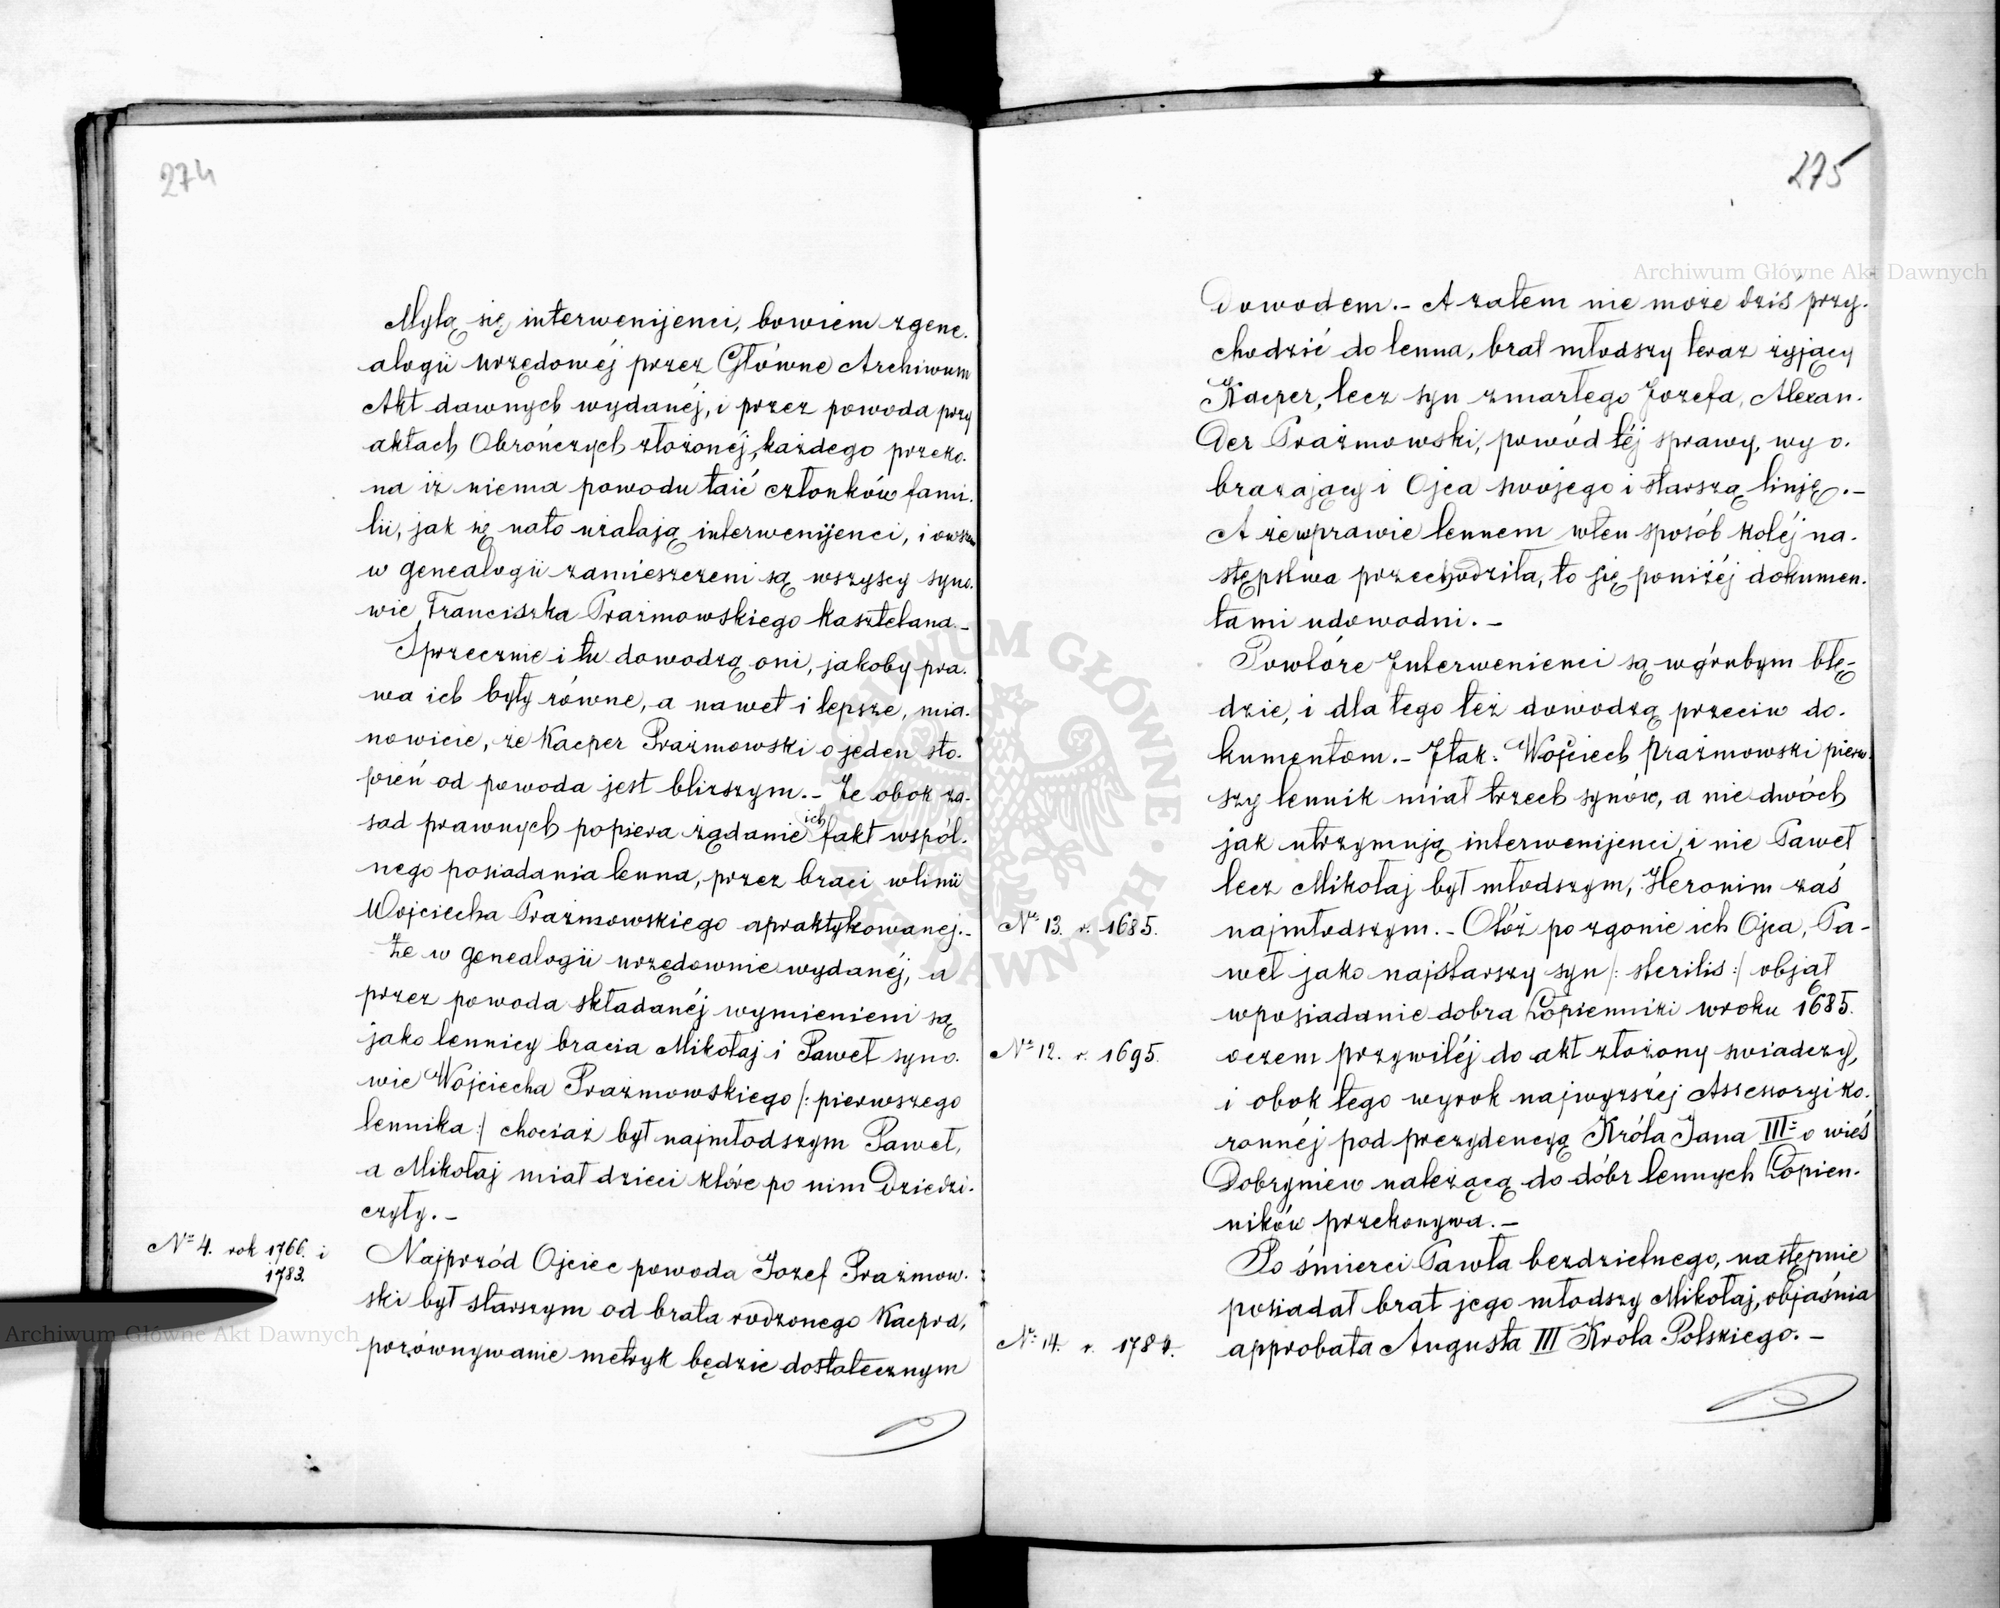 274
Mylą się interwenijenci, bowiem zgene.
alogii urzędowéj przez Główne Archiwum
Akt dawnych wydanéj, i przez powoda przy
aktach Obrończych złożonéj, każdego przeko.
na iż niema powodu taić członków fami.
lii, jak się nato użalają interwenijenci, i owszem
w genealogii zamieszczeni są wszyscy syno.
wie Franciszka Prażmowskiego Kasztelana.–
Sprzecznie i tu dowodzą oni, jakoby pra.
wa ich były równe, a nawet i lepsze, mia.
nowicie, że Kacper Prażmowski o jeden sto.
pień od powoda jest bliższym.– Że obok za.
sad prawnych popiera żądanie ich fakt wspól.
nego posiadania lenna, przez braci wlinii
Wojciecha Prażmowskiego apraktykowanej.–
Że w genealogii urzędownie wydanéj, a
przez powoda składanéj wymienieni są
jako lennicy bracia Mikołaj i Paweł syno.
wie Wojciecha Prażmowskiego /: pierwszego
lennika :/ chociaż był najmłodszym Paweł,
a Mikołaj miał dzieci które po nim Dziedzi.
czyły.–
№ 4. rok 1766. i
1783.
Najprzód Ojciec powoda Jozef Prażmow.
ski był starszym od brata rodzonego Kacpra,
porównywanie metryk będzie dostatecznym
275
Dowodem.– A zatem nie może dziś przy.
chodzić do lenna, brat młodszy teraz żyjący
Kacper, lecz syn zmarłego Jozefa, Alexan.
der Prażmowski, powód téj sprawy, wyo.
brażający i Ojca swojego i starszą linję.–
A że wprawie lennem wten sposób koléj na.
stępstwa przechodziła, to się poniżéj dokumen.
tami udowodni.–
Powtóre Interwenienci są wgrubym błę-
dzie, i dla tego też dowodzą przeciw do.
kumentom.– I tak: Wojciech Prażmowski pierw.
szy lennik miał trzech synów, a nie dwóch
jak utrzymują interwenijenci, i nie Paweł
lecz Mikołaj był młodszym, Heronim zaś
№ 13. r. 1685.
najmłodszym.– Otóż po zgonie ich Ojca, Pa-
weł jako najstarszy syn /: sterilis :/ objął
wposiadanie dobra Łopienniki wroku 1685.
№ 12. r. 1695.
oczem przywiléj do akt złożony swiadczy,
i obok tego wyrok najwyższéj Assessoryi ko.
ronnéj pod prezydencyą Króla Jana III⁼ o wieś
Dobryniew należącą do dóbr lennych Łopien.
ników przekonywa.–
Po śmierci Pawła bezdzietnego, następnie
posiadał brat jego młodszy Mikołaj, objaśnia
№ 14. r.
approbata Augusta III Króla Polskiego.–
Archiwum Główne Akt Dawnych
Archiwum Główne Akt Dawnych
ARCHIWUM GŁÓWNE AKT DAWNYCH